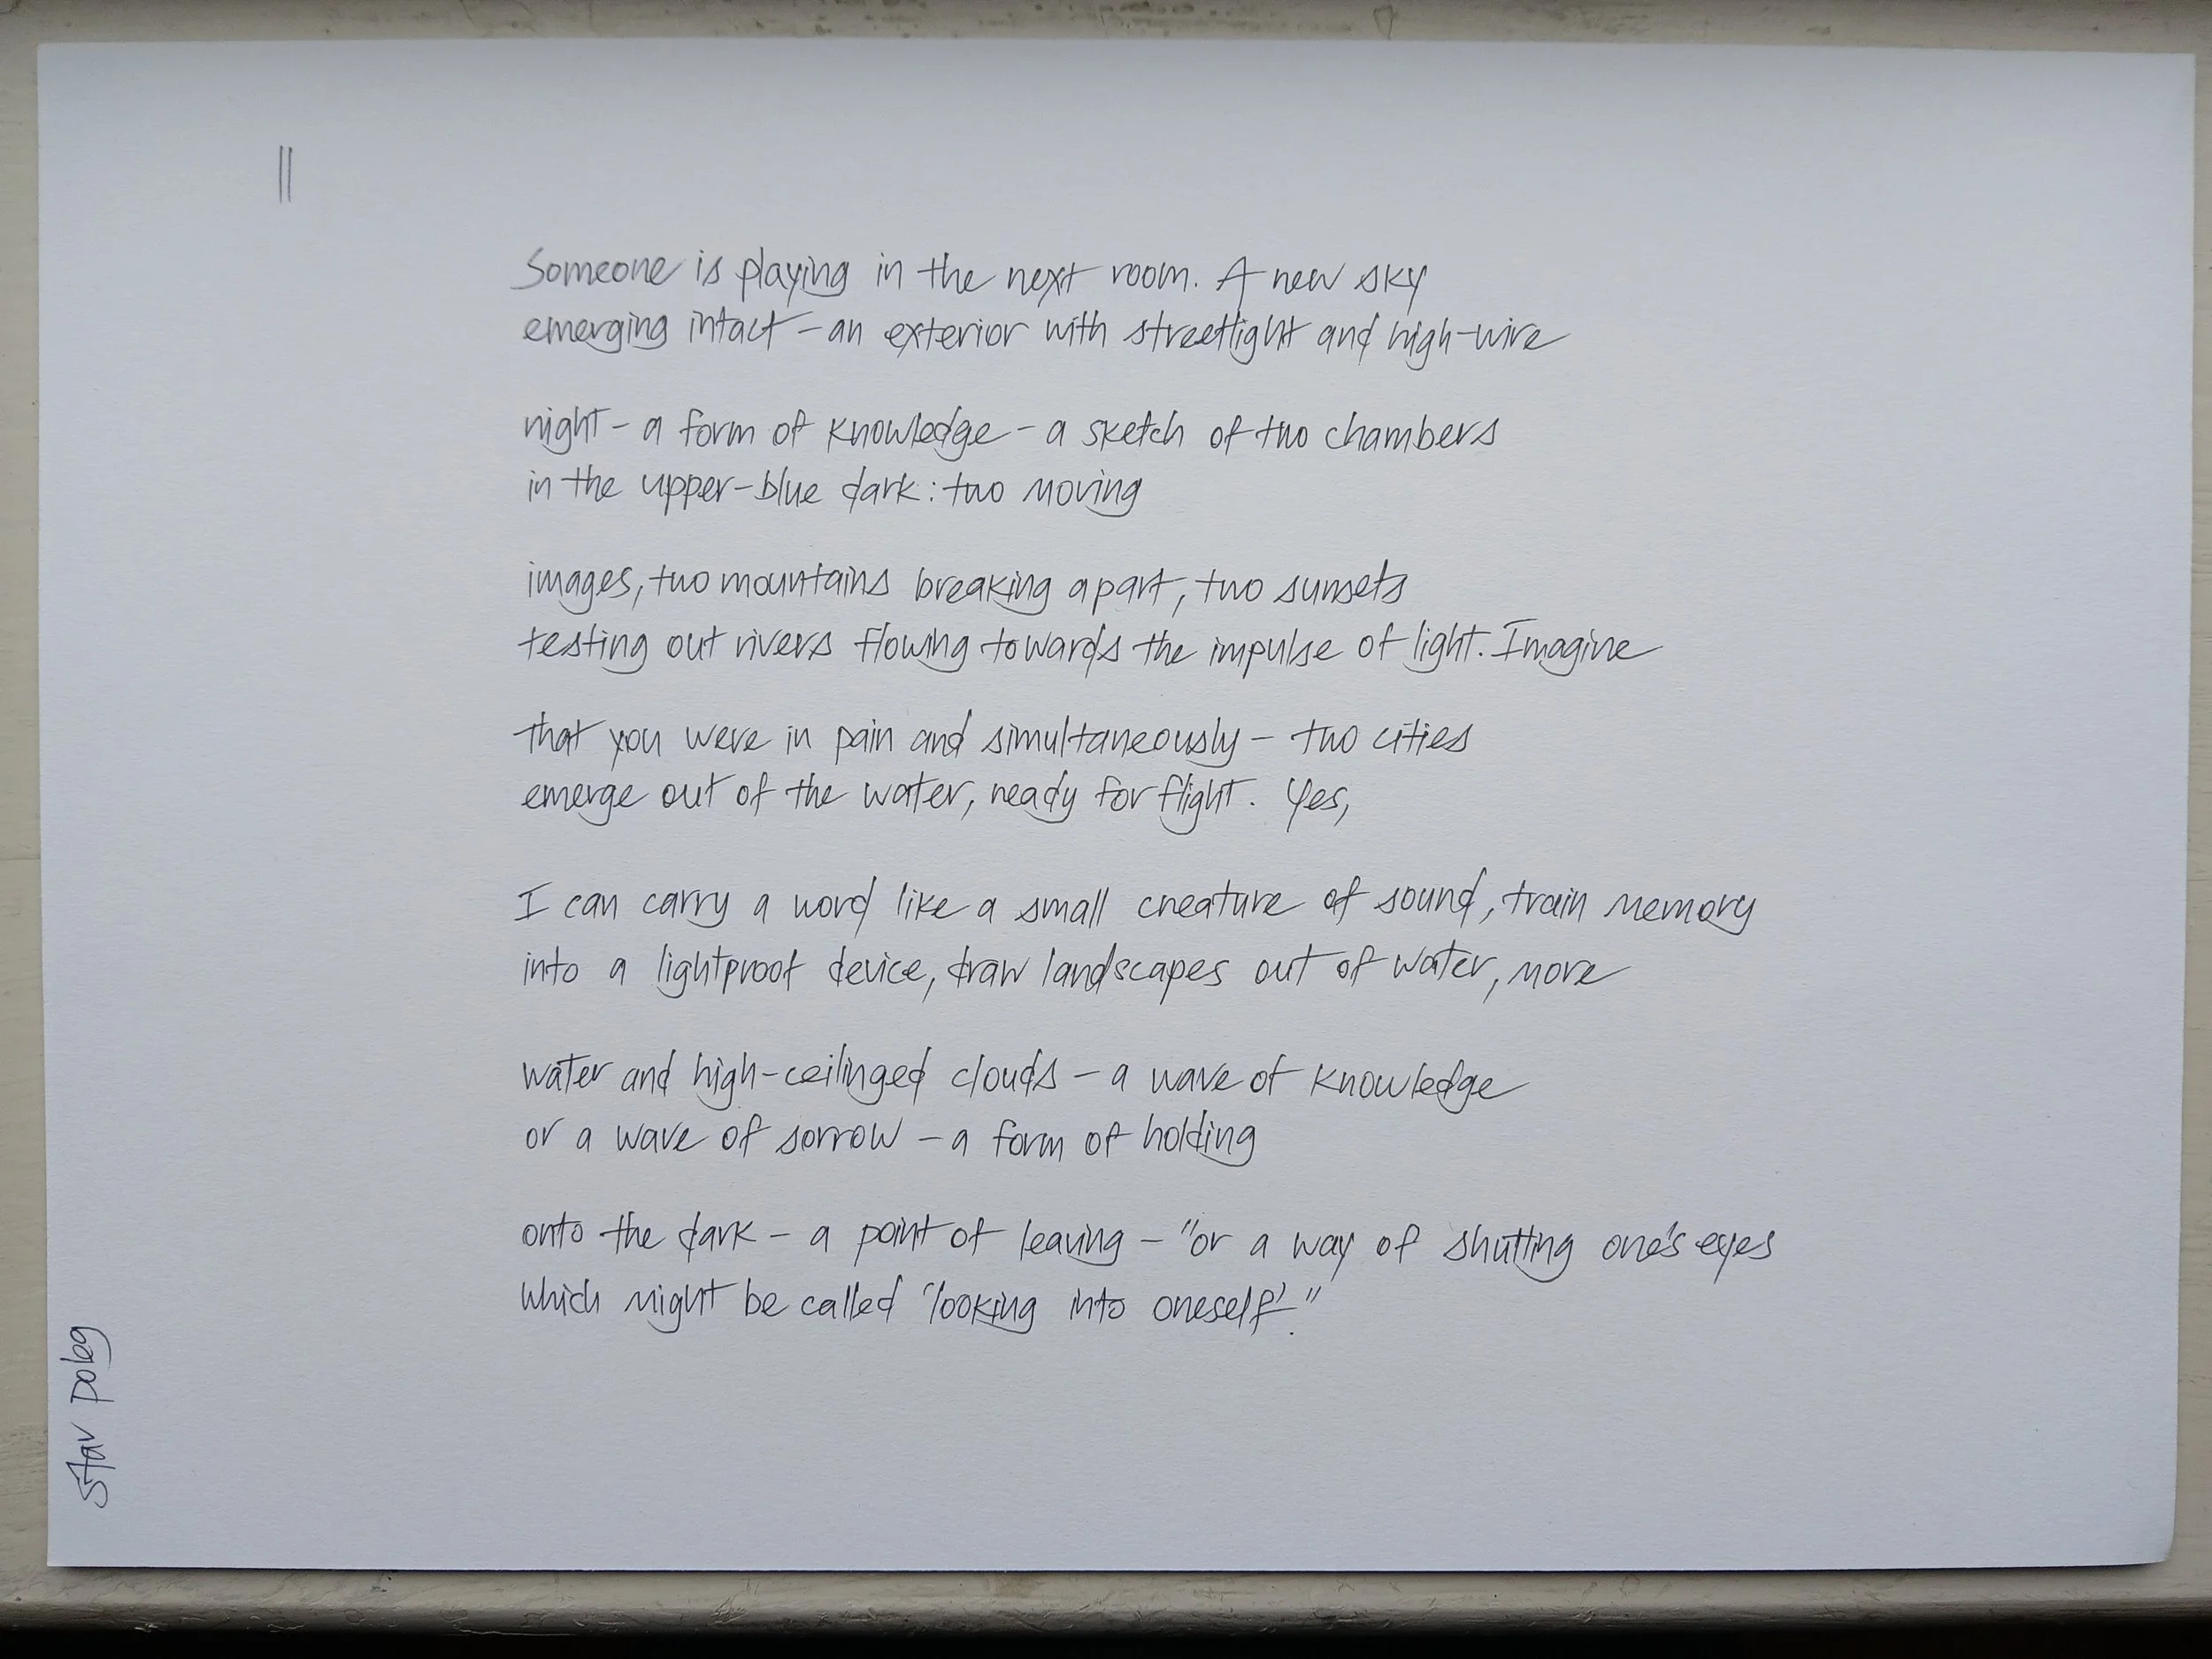 11
Someone is playing in the next room. A new sky
emerging intact – an exterior with streetlight and high-wire
night – a form of knowledge – a sketch of two chambers
in the upper-blue dark: two moving
images, two mountains breaking apart, two sunsets
testing out rivers flowing towards the impulse of light. Imagine
that you were in pain and simultaneously – two cities
emerge out of the water, ready for flight. Yes,
I can carry a word like a small creature of sound, train memory
into a lightproof device, draw landscapes out of water, more
water and high-ceilinged clouds – a wave of knowledge
or a wave of sorrow – a form of holding
onto the dark – a point of leaving – "or a way of shutting one's eyes
which might be called 'looking into oneself'."
Stav Poleg